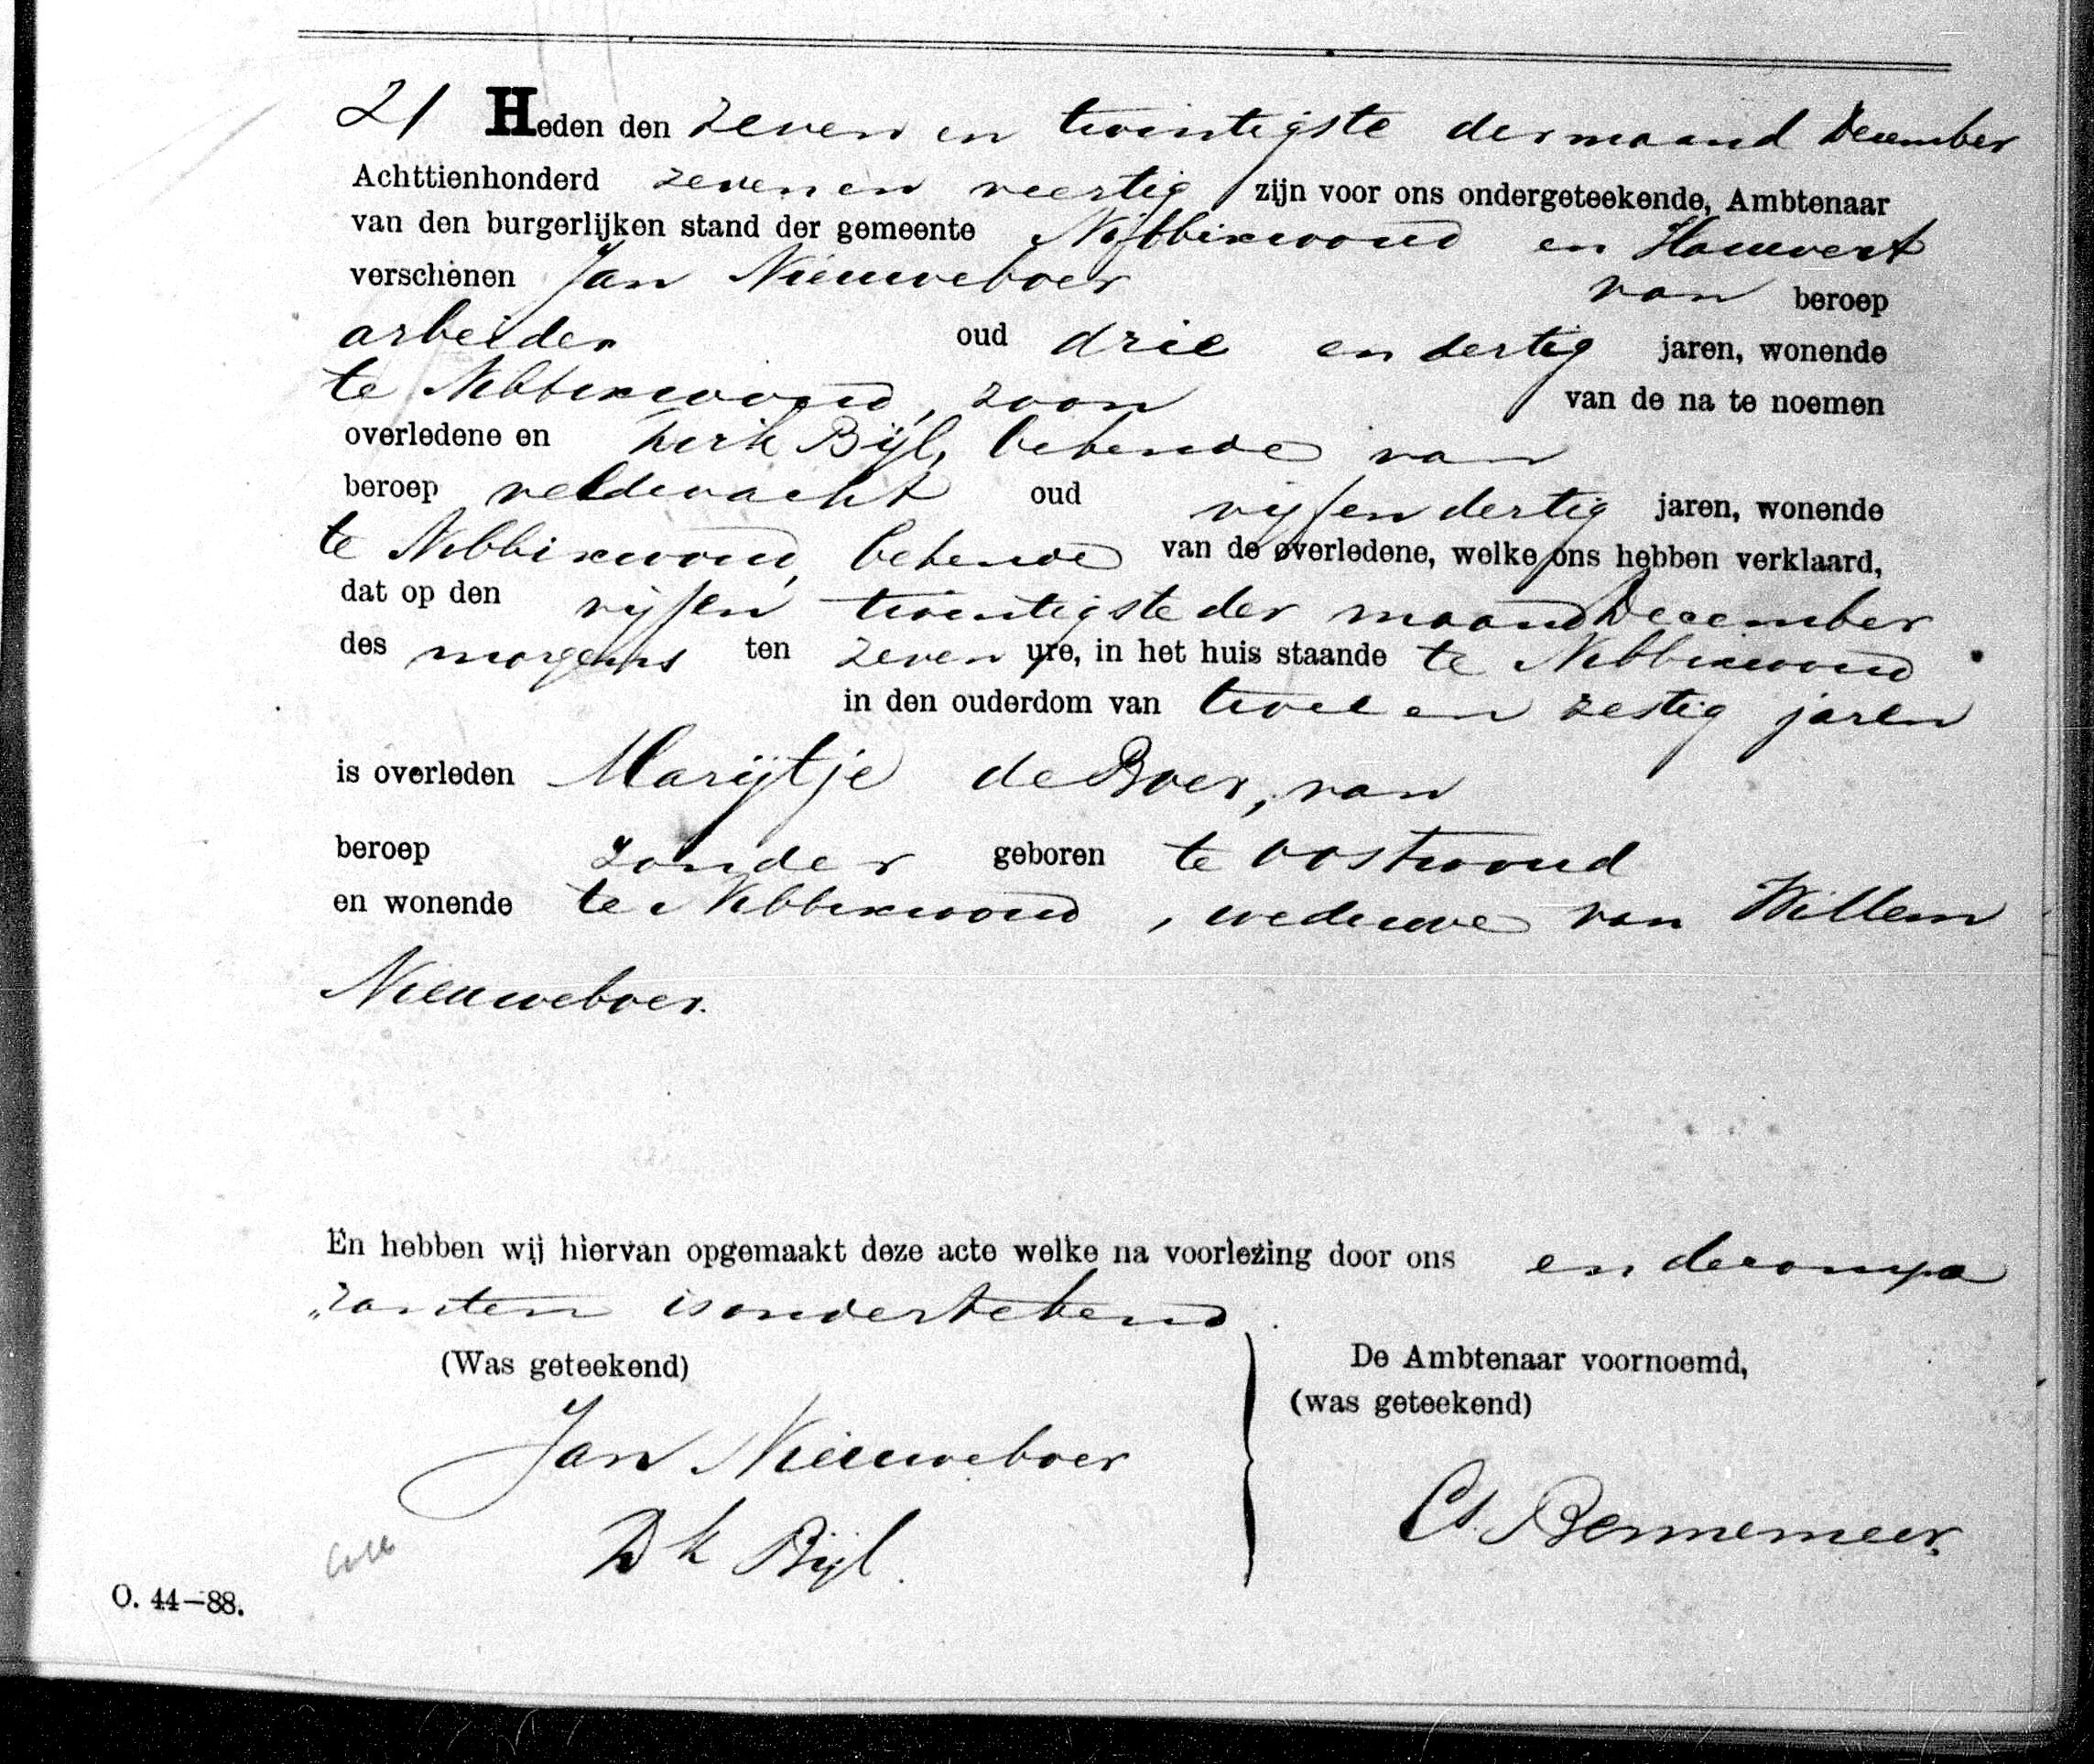 21 Heden den zeven en twintigste der maand December
Achttienhonderd zeven en veertig zijn voor ons ondergeteekende, Ambtenaar
van den burgerlijken stand der gemeente Nibbixwoud en Hauwert
verschenen Jan Nieuweboer van beroep
arbeider oud drie en dertig jaren, wonende
te Nibbixwoud, zoon van de na te noemen
overledene en Derk Bijl, bekende van
beroep veldwacht oud vijf en dertig jaren, wonende
te Nibbixwoud, bekende van de overledene, welke ons hebben verklaard,
dat op den vijf en twintigste der maand December
des morgens ten zeven ure, in het huis staande te Nibbixwoud
in den ouderdom van twee en zestig jaren
is overleden Marijtje de Boer, van
beroep zonder geboren te Oostwoud
en wonende te Nibbixwoud, weduwe van Willem
Nieuweboer.
En hebben wij hiervan opgemaakt deze acte welke na voorlezing door ons en de compa
„ranten is ondertekend.
(Was geteekend) De Ambtenaar voornoemd,
(was geteekend)
Jan Nieuweboer
Dk Bijl. Cs. Bennemeer.
O. 44—88.